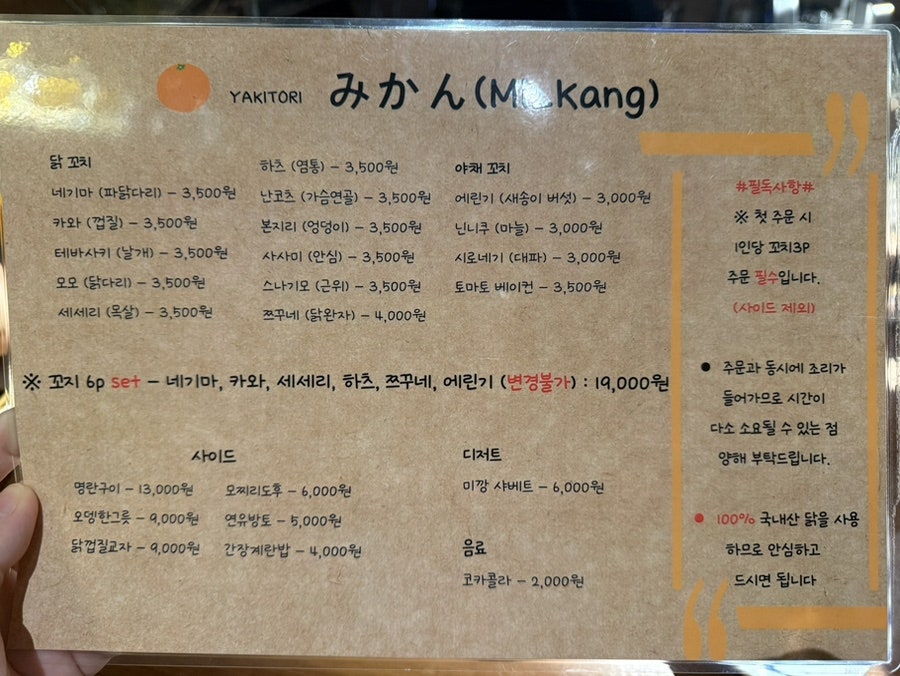 YAKITORI みかん(Mi_kang)
닭 꼬치
네기마 (파닭다리) - 3,500원
카와 (껍질) - 3,500원
테바사키 (날개) - 3,500원
모모 (닭다리) - 3,500원
세세리 (목살) - 3,500원
하츠 (염통) - 3,500원
난코츠 (가슴연골) - 3,500원
본지리 (엉덩이) - 3,500원
사사미 (안심) - 3,500원
스나기모 (근위) - 3,500원
쯔꾸네 (닭완자) - 4,000원
야채 꼬치
에린기 (새송이 버섯) - 3,000원
닌니쿠 (마늘) - 3,000원
시로네기 (대파) - 3,000원
토마토 베이컨 - 3,500원
※ 꼬지 6p set - 네기마, 카와, 세세리, 하츠, 쯔꾸네, 에린기 (변경불가) : 19,000원
사이드
명란구이 - 13,000원
오뎅한그릇 - 9,000원
닭껍질교자 - 9,000원
모찌리도후 - 6,000원
연유방토 - 5,000원
간장계란밥 - 4,000원
디저트
미깡 샤베트 - 6,000원
음료
코카콜라 - 2,000원
#필독사항#
※ 첫 주문 시
1인당 꼬치3P
주문 필수입니다.
(사이드 제외)
● 주문과 동시에 조리가
들어가므로 시간이
다소 소요될 수 있는 점
양해 부탁드립니다.
● 100% 국내산 닭을 사용
하므로 안심하고
드시면 됩니다